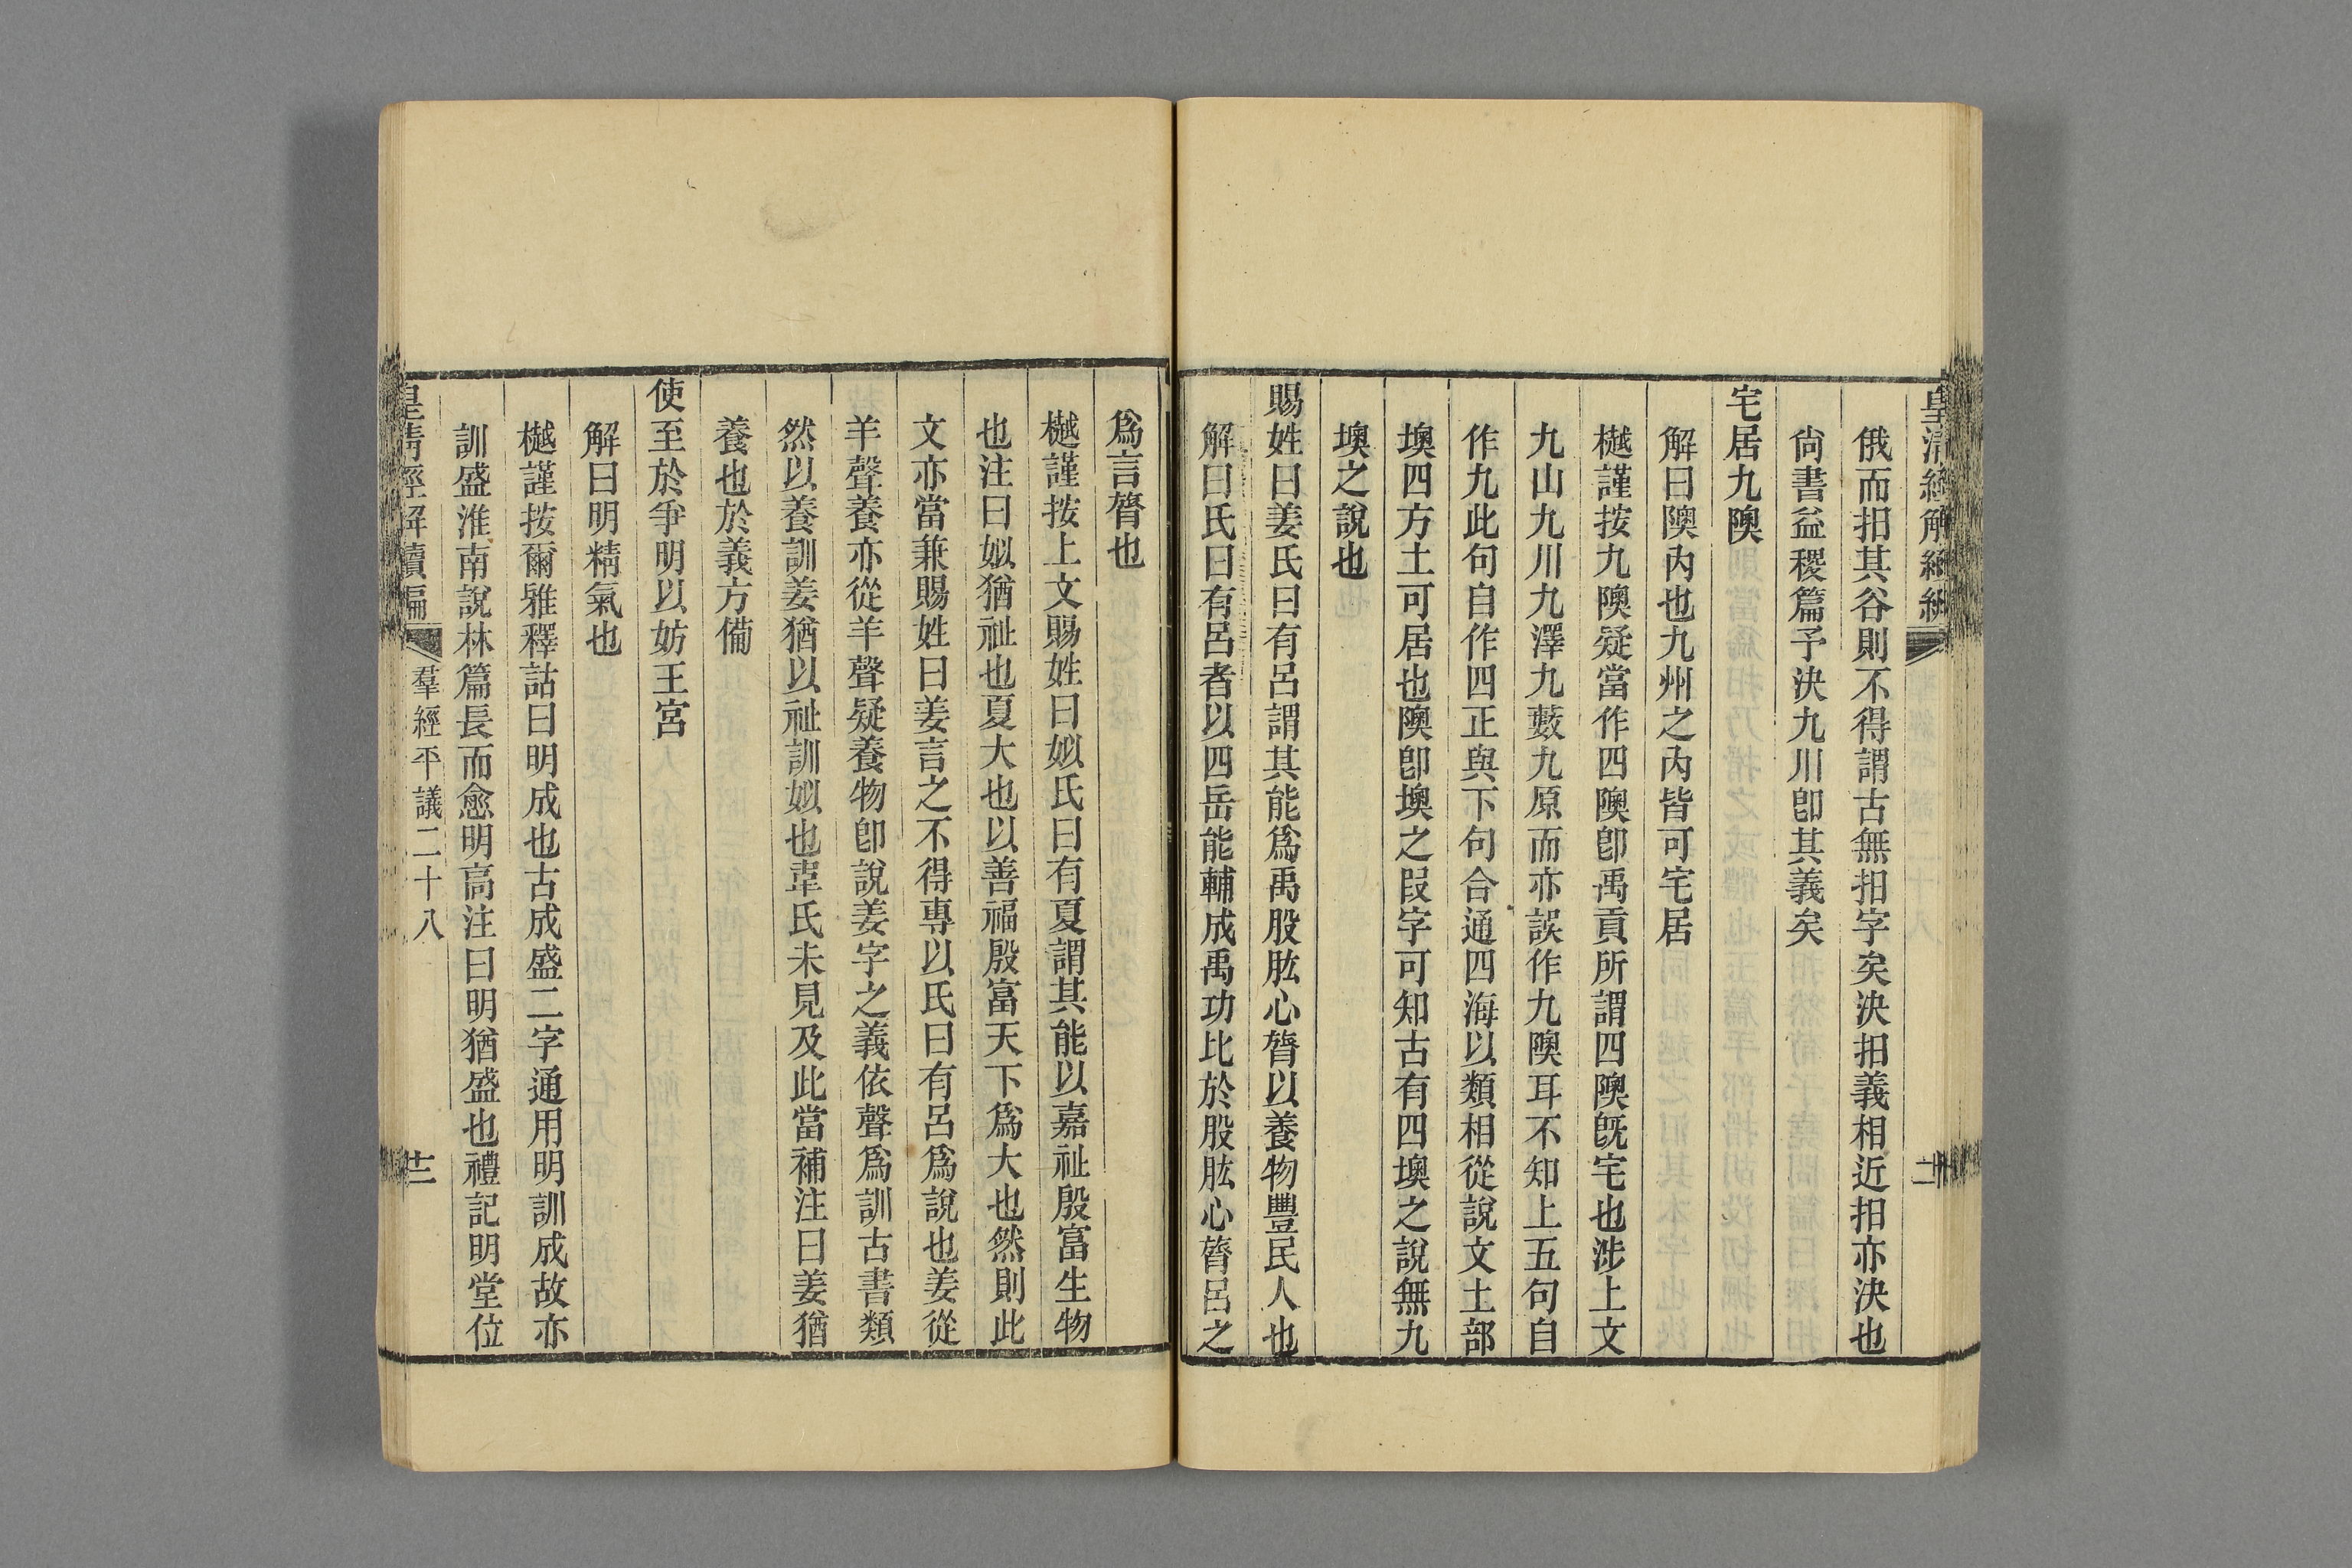 俄而抇其谷則不得謂古無抇字矣決抇義相近抇亦決也
尙書益稷篇予決九川卽其義矣
宅居九隩
解曰隩內也九州之內皆可宅居
樾謹按九隩疑當作四隩卽禹貢所謂四隩旣宅也涉上文
九山九川九澤九藪九原而亦誤作九隩耳不知上五句自
作九此句自作四正與下句合通四海以類相從說文土部
墺四方土可居也隩卽墺之叚字可知古有四墺之說無九
墺之說也
賜姓曰姜氏曰有呂謂其能爲禹股肱心膂以養物豐民人也
解曰氏曰有呂者以四岳能輔成禹功比於股肱心膂呂之
爲言膂也
樾謹按上文賜姓曰姒氏曰有夏謂其能以嘉祉殷富生物
也注曰姒猶祉也夏大也以善福殷富天下爲大也然則此
文亦當兼賜姓曰姜言之不得專以氏曰有呂爲說也姜從
羊聲養亦從羊聲疑養物卽說姜字之義依聲爲訓古書類
然以養訓姜猶以祉訓姒也韋氏未見及此當補注曰姜猶
養也於義方備
使至於爭明以妨王宮
解曰明精氣也
樾謹按爾雅釋詁曰明成也古成盛二字通用明訓成故亦
訓盛淮南說林篇長而愈明高注曰明猶盛也禮記明堂位
皇清經解續編
羣經平議二十八